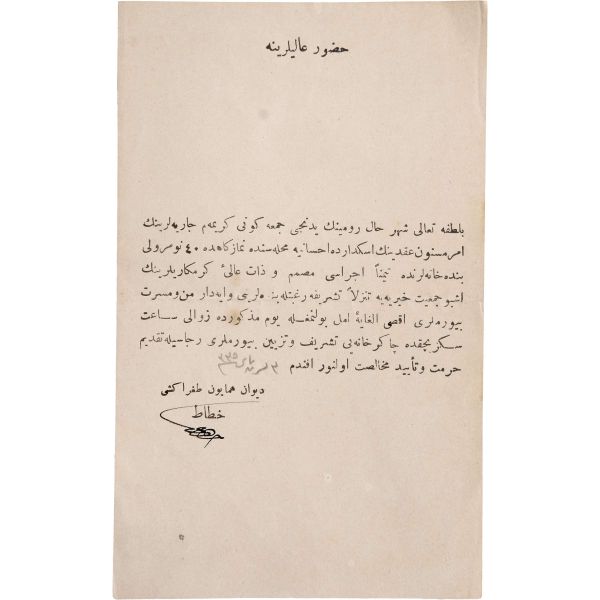 حضور عاليلرينه
بلطفه تعالى شهر حال رومينك يدنجى جمعه كونى كريمه‌م جاريه‌لرينك
امر مسنون عقدينك اسكدارده احسانيه محله‌سنده نمازكاهده ٤٠ نومرولى
بنده‌خانه‌لرنده تيمناً اجراسى مصمم و ذات عالئ كرمكاريلرينك
اشبو جمعيت خيريه‌يه تنزلاً تشريفه رغبتله وايه‌دار من ومسرت
بيورملرى اقصى الغاية امل بولنمغله يوم مذكورده زوالى ساعت
سكز بچقده چاكرخانه‌يى تشريف و تزيين بيورملرى رجاسيله تقديم
حرمت و تأييد مخالصت اولنور افندم ٣ ٣٣٥
ديوان همايون طغراكشى
خطاط